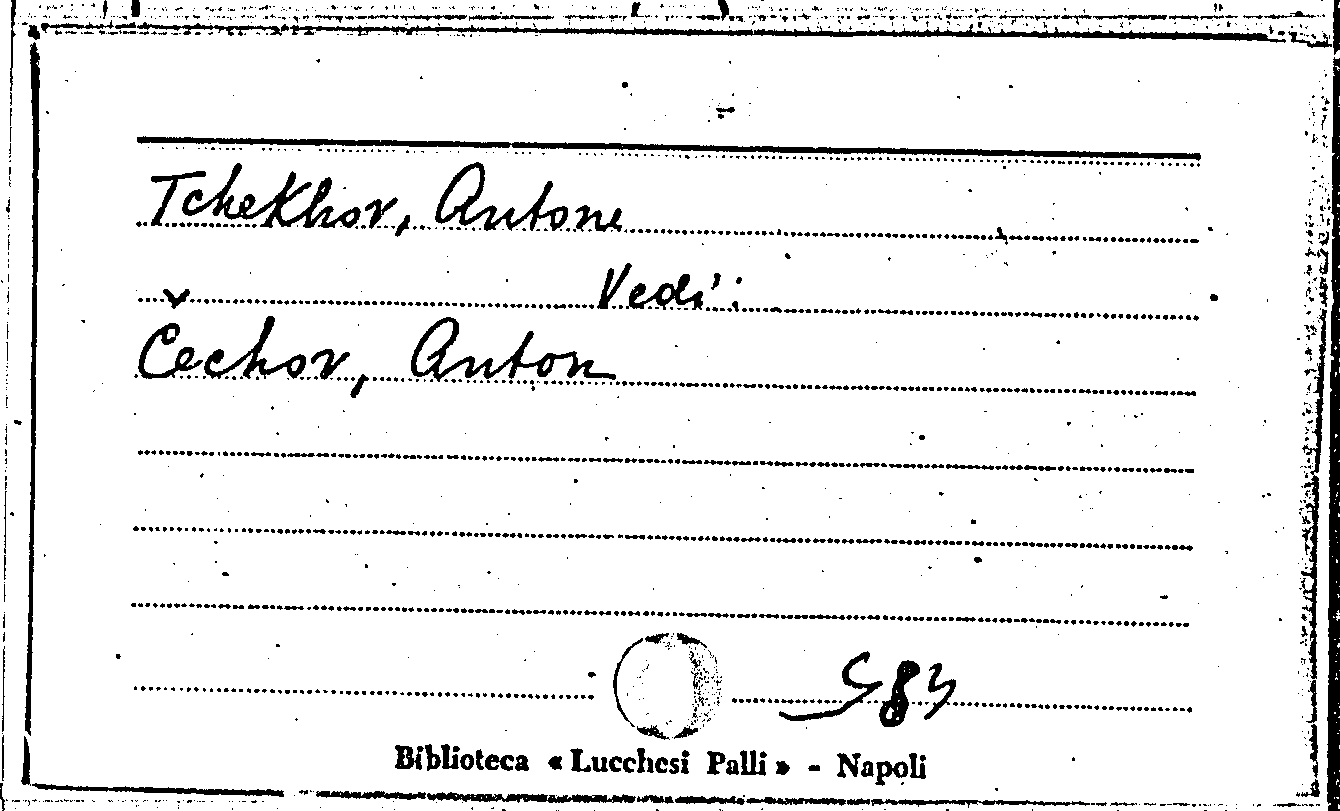 Tchekhov, Antone
Vedi:
Čechov, Anton
583
Biblioteca « Lucchesi Palli » - Napoli